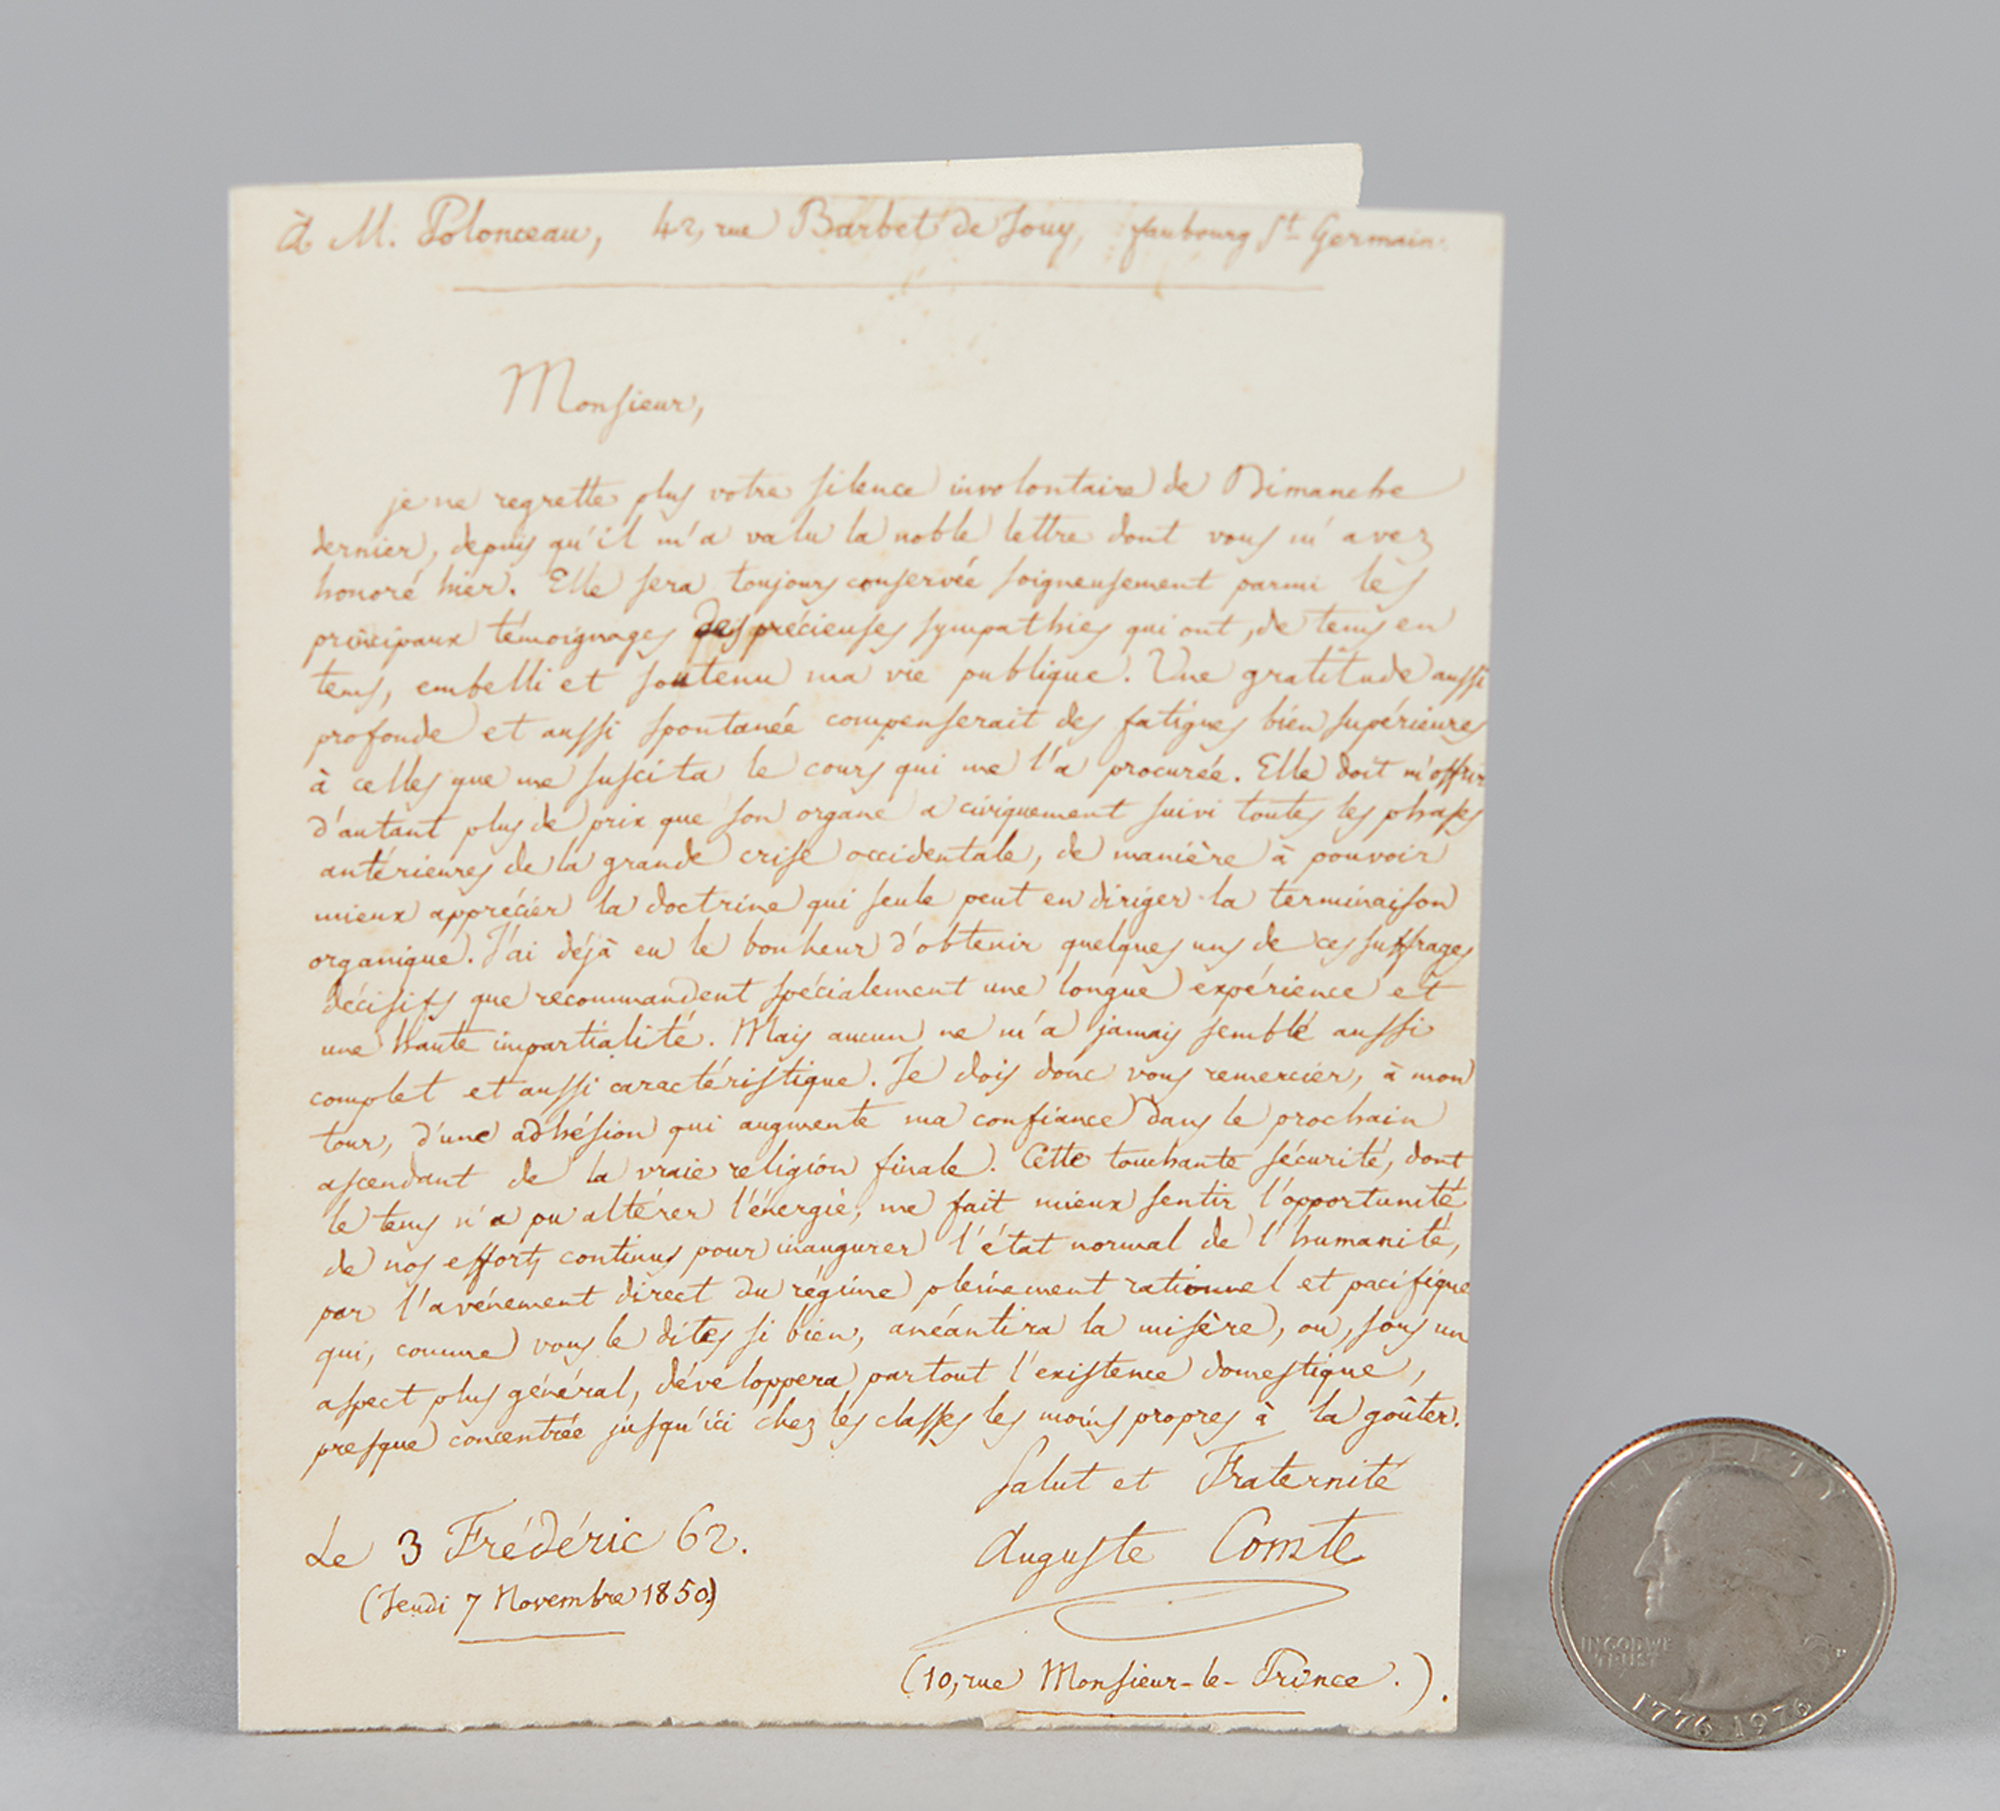 à M. Polonceau, 42, rue Barbet de Jouy, faubourg St Germain.
Monsieur,
je ne regrette plus votre silence involontaire de Dimanche
dernier, depuis qu'il m'a valu la noble lettre dont vous m'avez
honoré hier. Elle sera toujours conservée soigneusement parmi les
principaux témoignages des précieuses sympathies qui ont, de tems en
tems, embelli et soutenu ma vie publique. Une gratitude aussi
profonde et aussi spontanée compenserait des fatigues bien supérieures
à celles que me suscita le cours qui me l'a procurée. Elle doit m'offrir
d'autant plus de prix que son organe a civiquement suivi toutes les phases
antérieures de la grande crise occidentale, de manière à pouvoir
mieux apprécier la doctrine qui seule peut en diriger la terminaison
organique. J'ai déjà eu le bonheur d'obtenir quelques uns de ces suffrages
décisifs que recommandent spécialement une longue expérience et
une haute impartialité. Mais aucun ne m'a jamais semblé aussi
complet et aussi caractéristique. Je dois donc vous remercier, à mon
tour, d'une adhésion qui augmente ma confiance dans le prochain
ascendant de la vraie religion finale. Cette touchante sécurité, dont
le tems n'a pu altérer l'énergie, me fait mieux sentir l'opportunité
de nos efforts continus pour inaugurer l'état normal de l'humanité,
par l'avénement direct du régime pleinement rationnel et pacifique
qui, comme vous le dites si bien, anéantira la misère, ou, sous un
aspect plus général, développera partout l'existence domestique,
presque concentrée jusqu'ici chez les classes les moins propres à la goûter.
Salut et Fraternité
Auguste Comte
Le 3 Frédéric 62.
(Jeudi 7 Novembre 1850)
(10, rue Monsieur-le-Prince.).
LIBERTY
IN GOD WE
TRUST
1776-1976